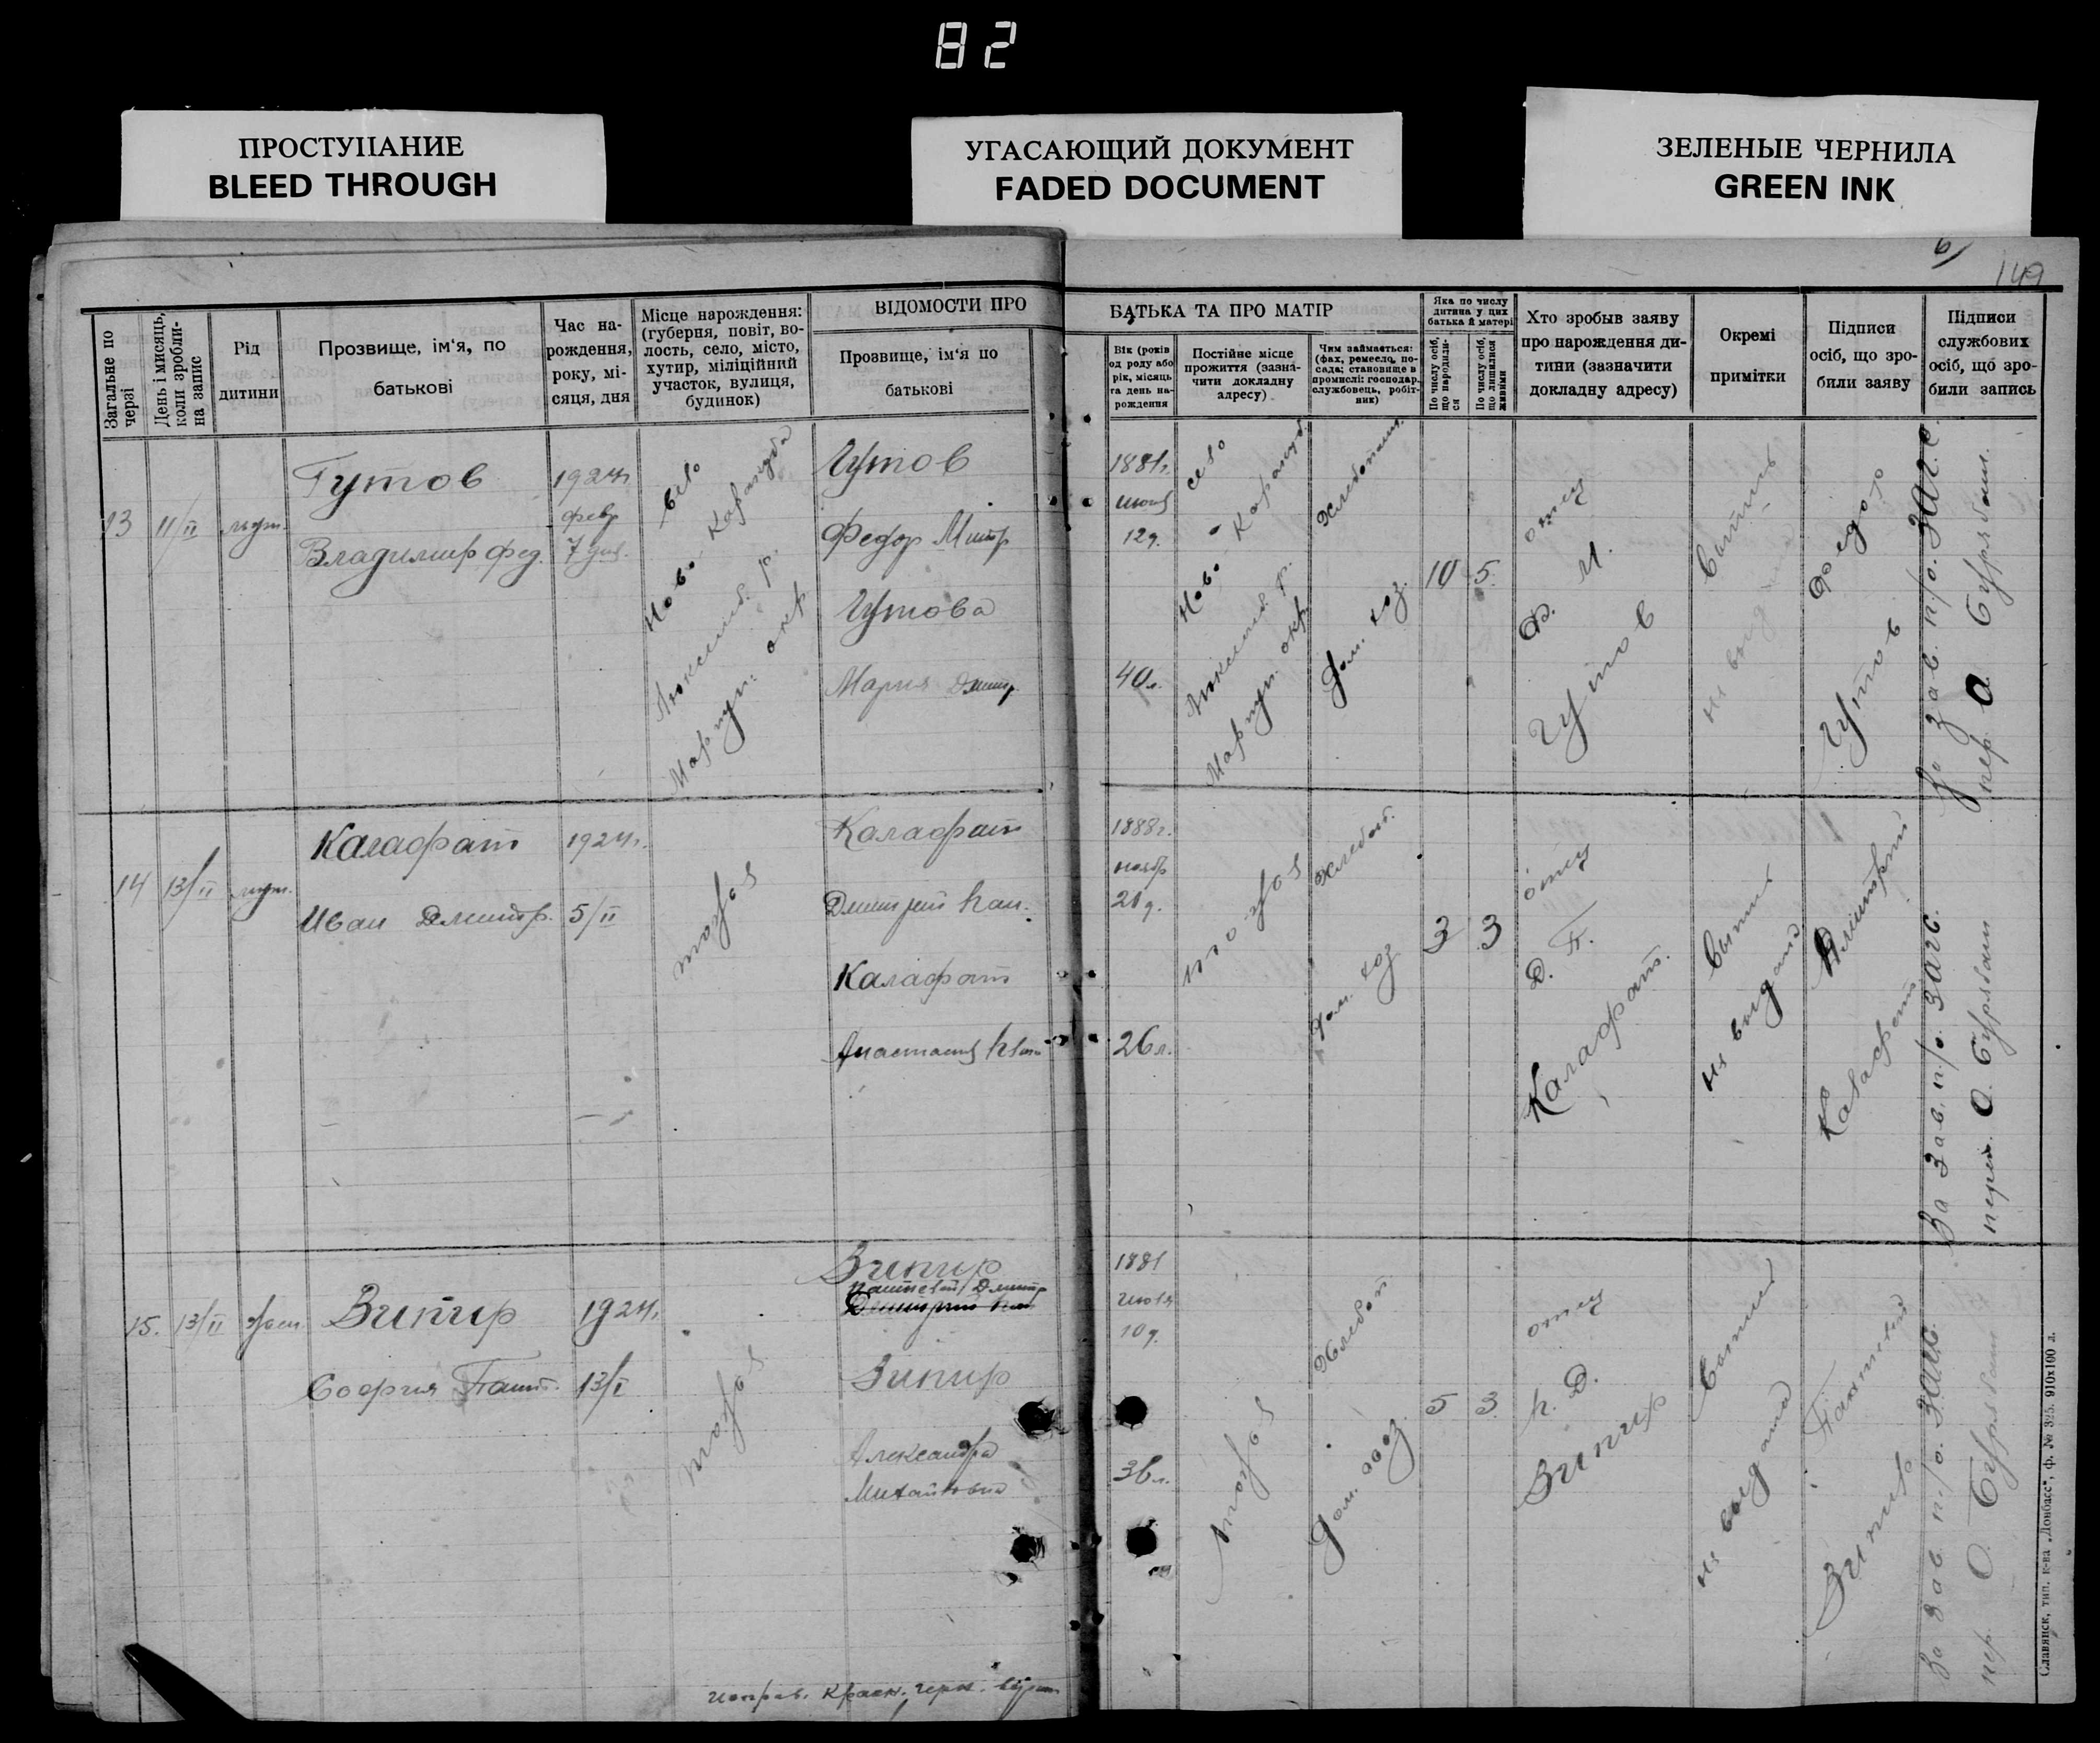 82
ПРОСТУПАНИЕ
BLEED THROUGH
УГАСАЮЩИЙ ДОКУМЕНТ
FADED DOCUMENT
ЗЕЛЕНЫЕ ЧЕРНИЛА
GREEN INK
149
Загальне по черзі
День і мисяць, коли зробли- на запис
Рід
дитини
Прозвище, ім'я, по
батькові
Час на-
рождення,
року, мі-
сяця, дня
Місце нарождення:
(губерня, повіт, во-
лость, село, місто,
хутир, міліційний
участок, вулиця,
будинок)
ВІДОМОСТИ ПРО
Прозвище, ім'я по
батькові
БАТЬКА ТА ПРО МАТІР
Вік (років
од роду або
рік, місяць
та день на-
рождення
Постійне місце
прожиття (зазна-
чити докладну
адресу)
Чим займається:
(фах, ремесло, по-
сада; становище в
промислі: господар,
службовець, робіт-
ник)
Яка по числу
дитина у цих
батька й матері
По числу осіб,
що народили-
ся
По числу осіб,
що лишилися
живими
Хто зробыв заяву
про нарождення ди-
тини (зазначити
докладну адресу)
Окремі
примітки
Підписи
осіб, що зро-
били заяву
Підписи
службових
осіб, що зро-
били запись
13
11/II
Гутов
Владимир Фед.
1924г.
февр
7 дня.
село
Ново Каракуба
Мариуп. окр.
Гутов
Федор Митр
Гутова
Мария Дмитр.
1881г.
12д.
40л.
село
Ново Каракуб.
Мариуп. окр.
дом. хоз.
10
5.
отец
Ф. И.
Гутов
Федор
Гутов
За зав. п/о. ЗАГС.
пер. О.
14
13/II
Калафат
Иван Дмитр.
1924г.
5/II
тоже
Калафат
Дмитрий
Калафат
Анастасия
1888г.
ноябр
26л.
тоже
Хлебоп.
дом. хоз
3
3
отец
Д. П.
Калафат.
не выдана
Дмитрий
Калафат
За Зав. п/о. ЗАГС.
О.
15.
13/II
Зипир
София Пант.
1924г.
13/I
тоже
Зипир
Пантелей Дмитр
Зипир
Александра
Михайловна
1881
июля
10д.
36л.
тоже
Хлебоп
дом. хоз
5
3.
отец
П. Д.
Зипир
не выдана
Пантелей
Зипир
За Зав п/о. ЗАГС.
пер. О.
исправ. красн. черн.
Славянск, тип. к-ва „Донбасс", ф. № 325. 910х100 л.